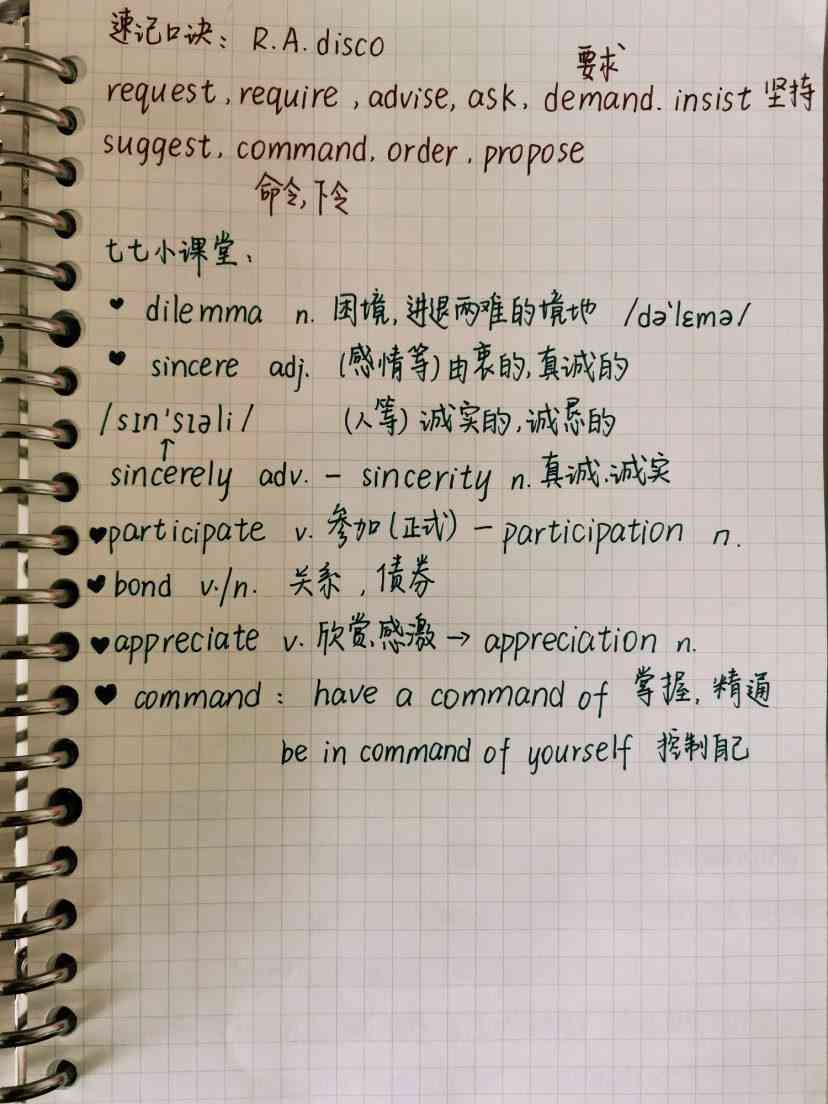 速记口诀：R.A.disco
要求
request, require, advise, ask, demand. insist 坚持
suggest, command, order, propose
命令,下令
七七小课堂、
♥ dilemma n. 困境,进退两难的境地 /də'lɛmə/
♥ sincere adj. (感情等)由衷的,真诚的
/sɪn'sɪəli/ (人等)诚实的,诚恳的
↑
sincerely adv. – sincerity n. 真诚.诚实
♥participate v. 参加(正式) – participation n.
♥bond v./n. 关系, 债券
♥appreciate v. 欣赏,感激 → appreciation n.
♥ command: have a command of 掌握, 精通
be in command of yourself 控制自己